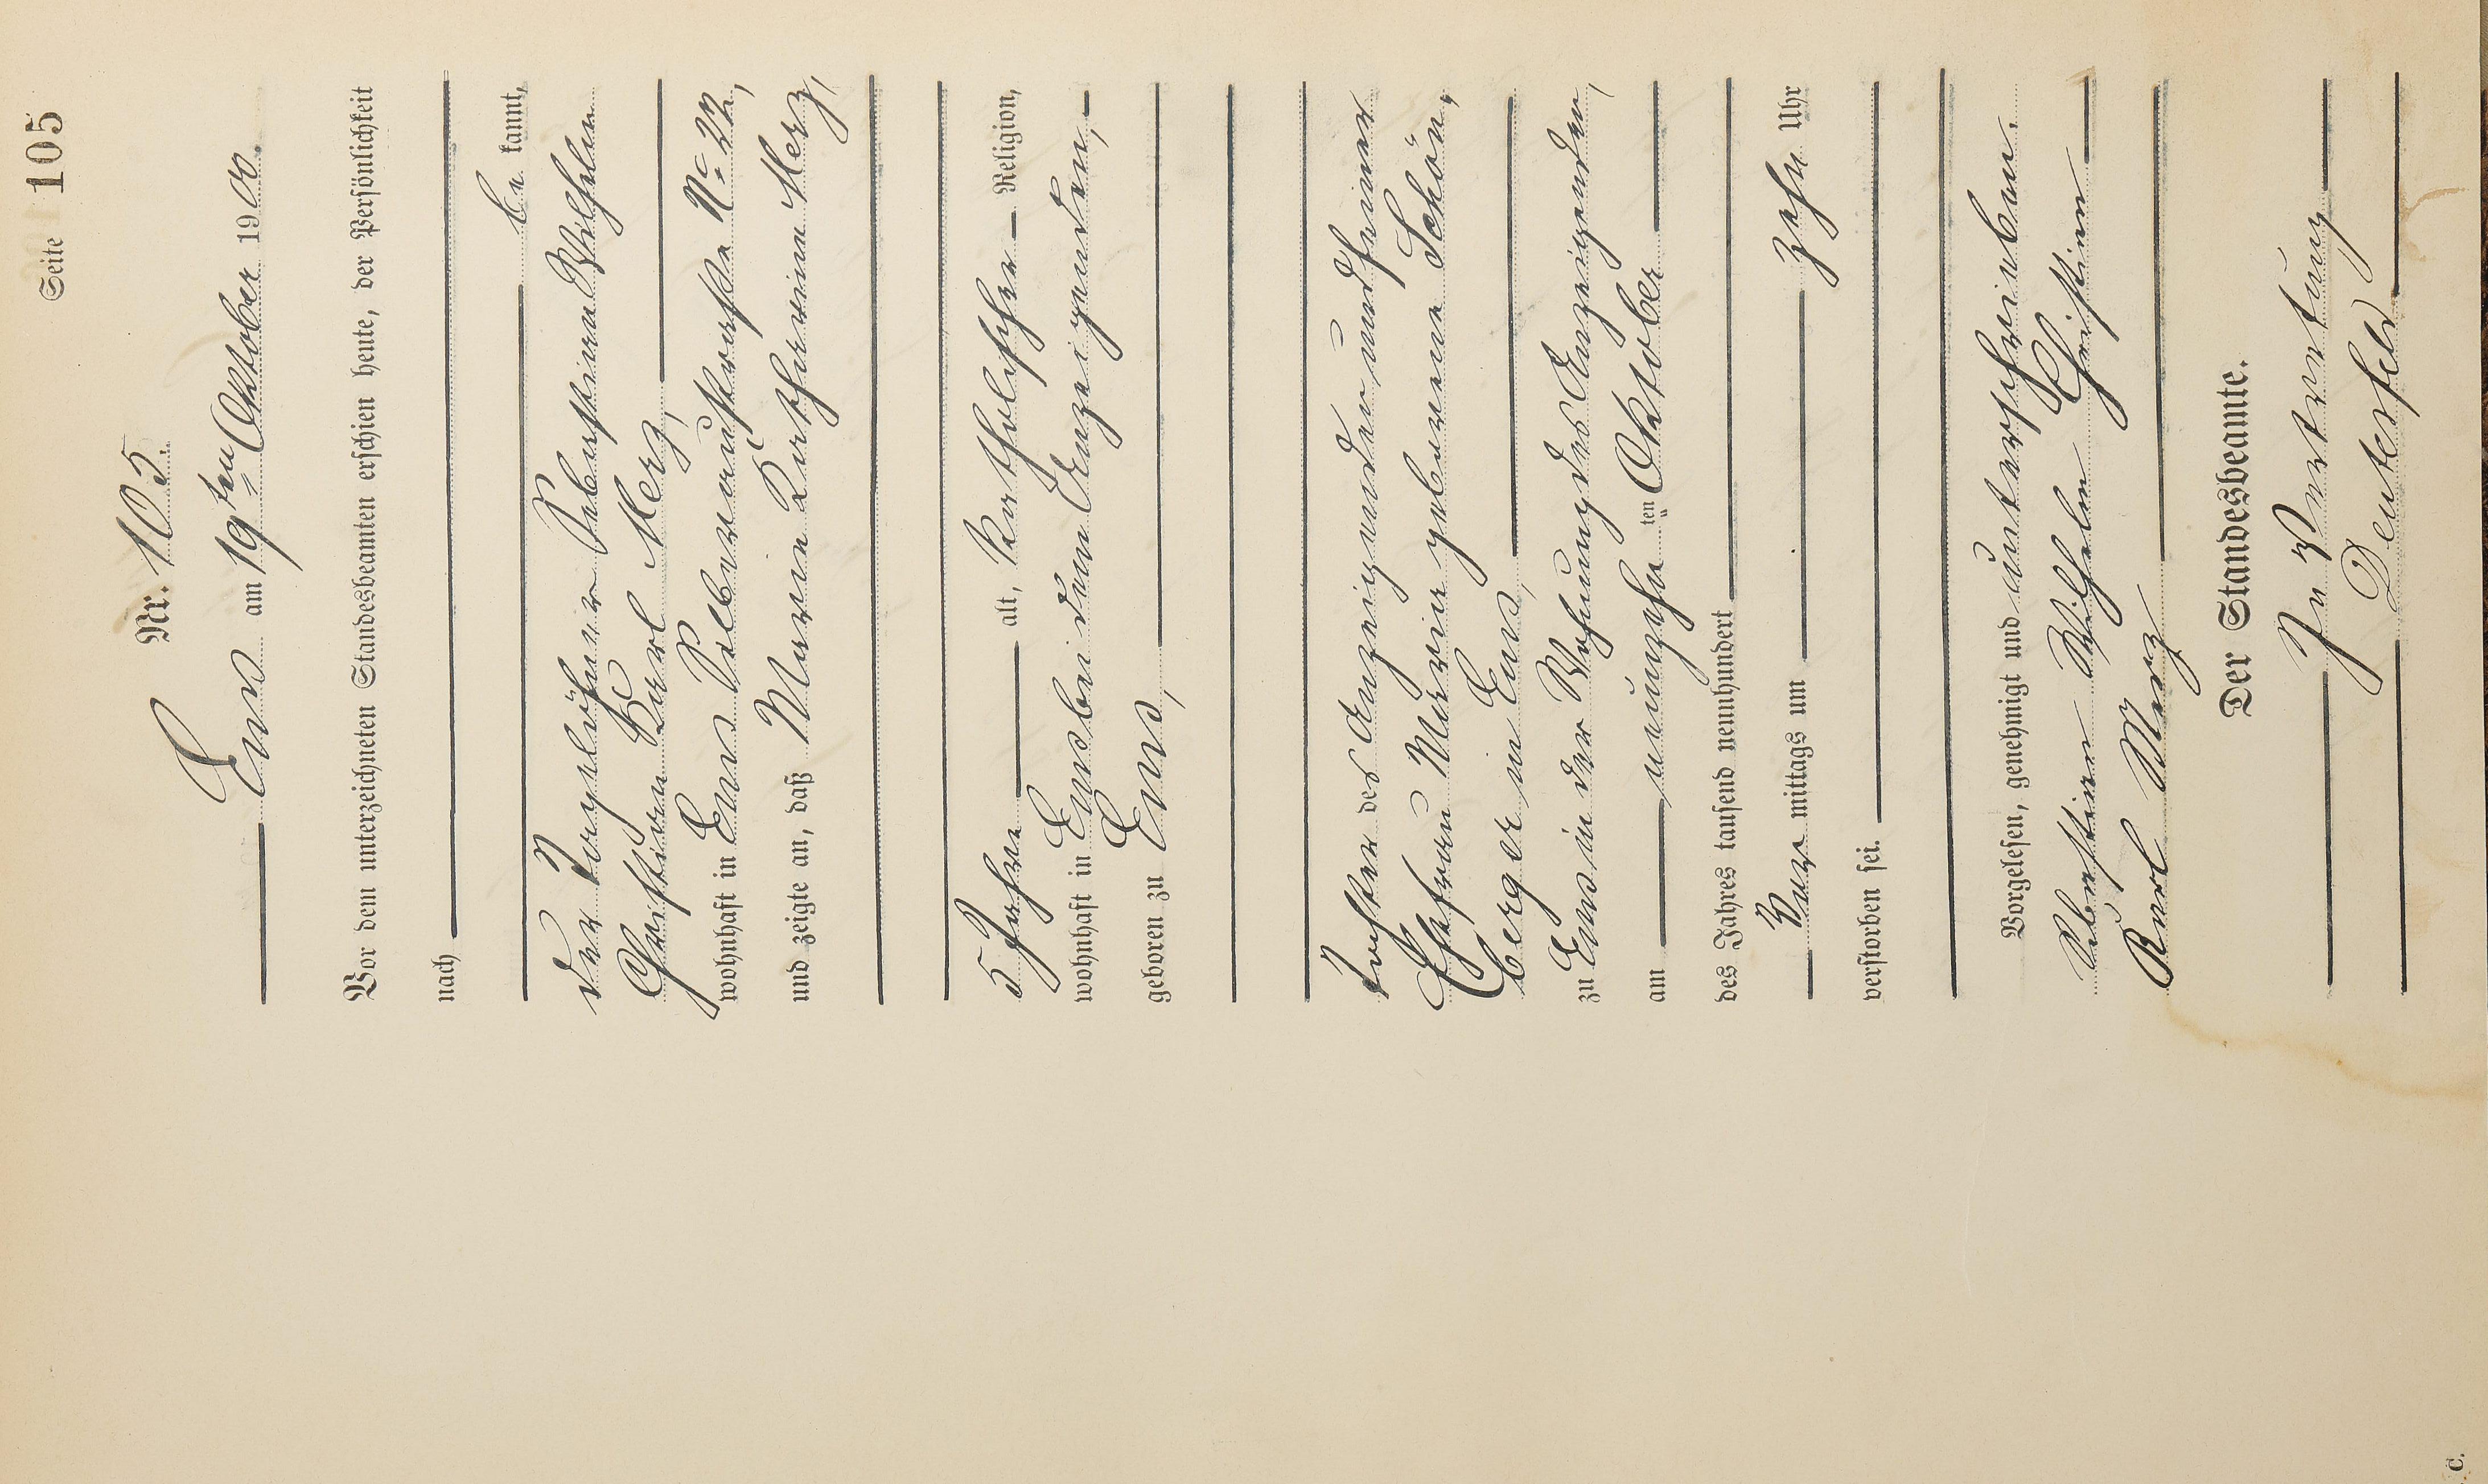 Seite 105
Nr. 105.
Ems am 19ten Oktober 1900.
Vor dem unterzeichneten Standesbeamten erschien heute, der Persönlichkeit
nach
be kannt,
der Tagelöhner Sebastian Wilhelm
Christian Karl Merz,
wohnhaft in Ems Silberaustraße No 22,
und zeigte an, daß Maria Katharina Merz,
5 Jahre alt, katholischer Religion,
wohnhaft in Ems bei dem Anzeigenden,
geboren zu Ems,
Tochter des Anzeigenden und seiner
Ehefrau Maria geborene Schön,
berger in Ems,
zu Ems in der Wohnung des Anzeigenden,
am neunzehn ten Oktober
des Jahres tausend neunhundert
Vor mittags um zehn Uhr
verstorben sei.
Vorgelesen, genehmigt und unterschrieben.
Sebastian Wilhelm Christian
Karl Merz
Der Standesbeamte.
In Vertretung
C.